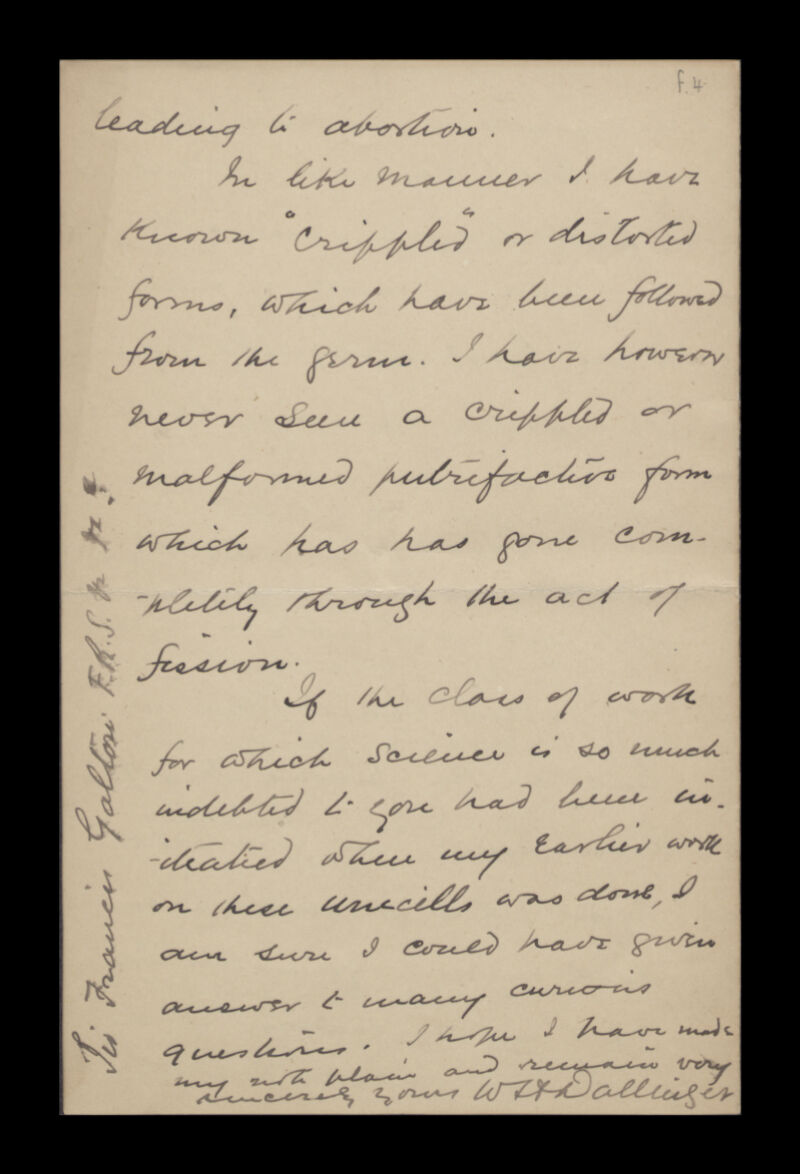 f. 4
leading to abortion.
In like manner I have
known "crippled" or distorted
forms, which have been followed
from the germ. I have however
never seen a crippled or
malformed putrifactive form
which has has gone com-
-pletely through the act of
fission.
If the class of work
for which Science is so much
indebted to you had been in-
-itiatied when my earlier work
on these unicells was done, I
am sure I could have given
answer to many curious
questions. I hope I have made
my note plain and remain very
sincerely yours W H Dallinger
Francis Galton F.R.S.